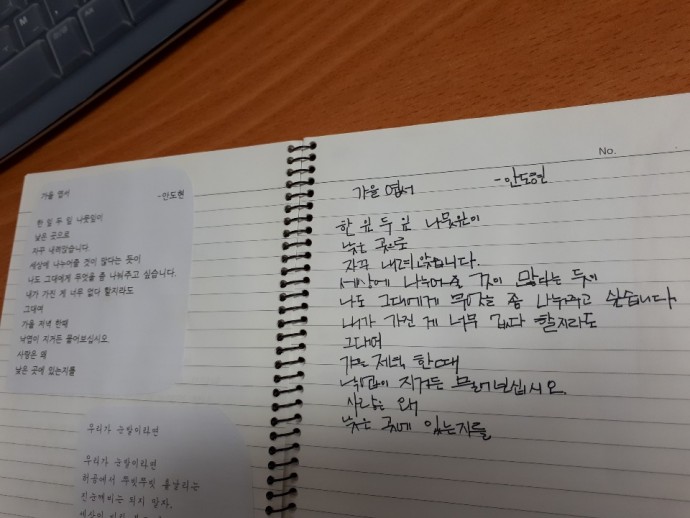 가을 엽서 -안도현
한 잎 두 잎 나뭇잎이
낮은 곳으로
자꾸 내려앉습니다.
세상에 나누어줄 것이 많다는 듯이
나도 그대에게 무엇을 좀 나눠주고 싶습니다.
내가 가진 게 너무 없다 할지라도
그대여
가을 저녁 한때
낙엽이 지거든 물어보십시오
사랑은 왜
낮은 곳에 있는지를
우리가 눈발이라면
우리가 눈발이라면
허공에서 쭈빗쭈빗 흩날리는
진눈깨비는 되지 말자.
No.
가을 엽서 -안도현
한 잎 두 잎 나뭇잎이
낮은 곳으로
자꾸 내려앉습니다.
세상에 나누어줄 것이 많다는 듯이
나도 그대에게 무엇을 좀 나눠주고 싶습니다
내가 가진 게 너무 없다 할지라도
그대여
가을 저녁 한때
낙엽이 지거든 물어보십시오.
사랑은 왜
낮은 곳에 있는지를